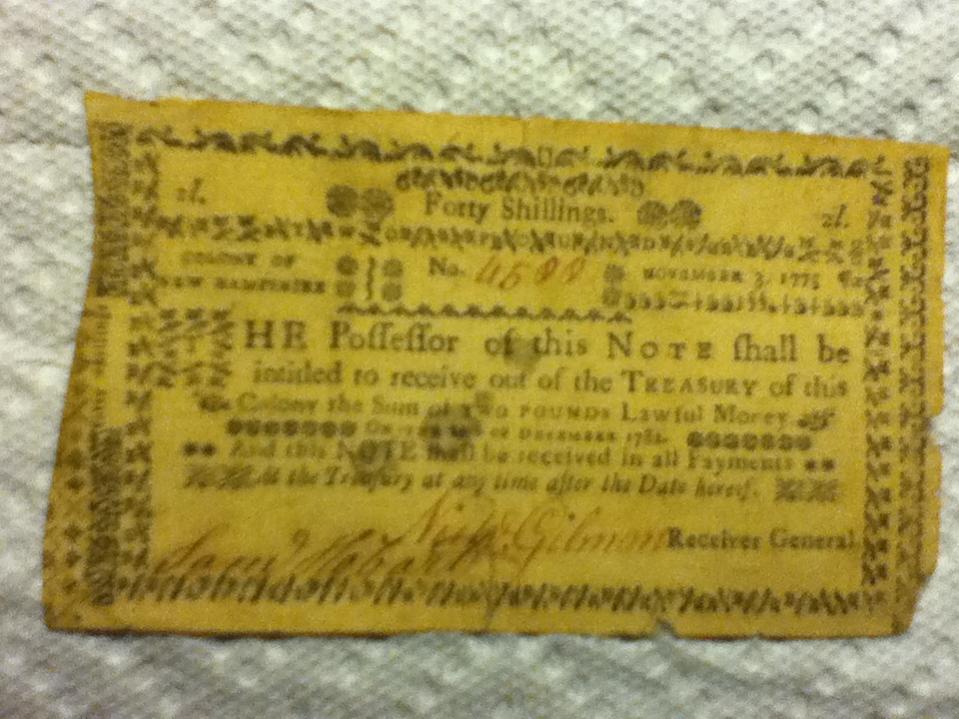 Forty Shillings.
COLONY OF
NEW HAMPSHIRE
No. 4500
NOVEMBER 3, 1775
THE Poſſeſſor of this NOTE ſhall be
intitled to receive out of the TREASURY of this
Colony the Sum of TWO POUNDS Lawful Money
OF DECEMBER
And this NOTE ſhall be received in all Payments
At the Treaſury at any time after the Date hereof.
Gilman Receiver General
Sam